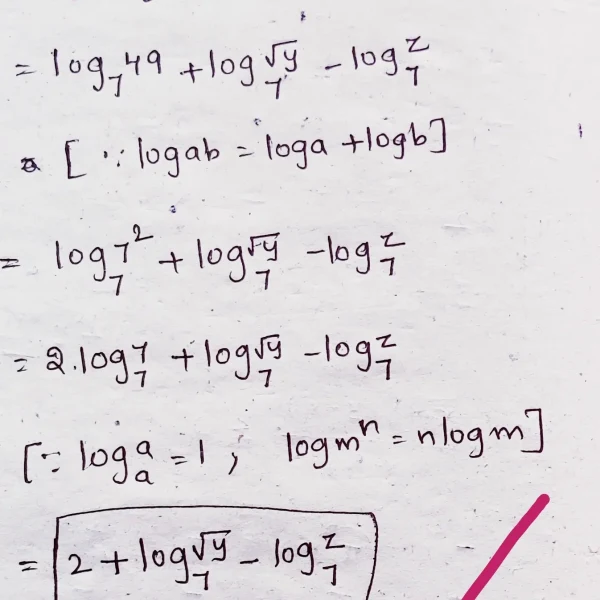 = log₇49 + log₇√y - log₇z
[∵ logab = loga + logb]
= log₇7² + log₇√y - log₇z
= 2.log₇7 + log₇√y - log₇z
[∵ logₐa = 1 ; logmⁿ = nlogm]
= 2 + log₇√y - log₇z